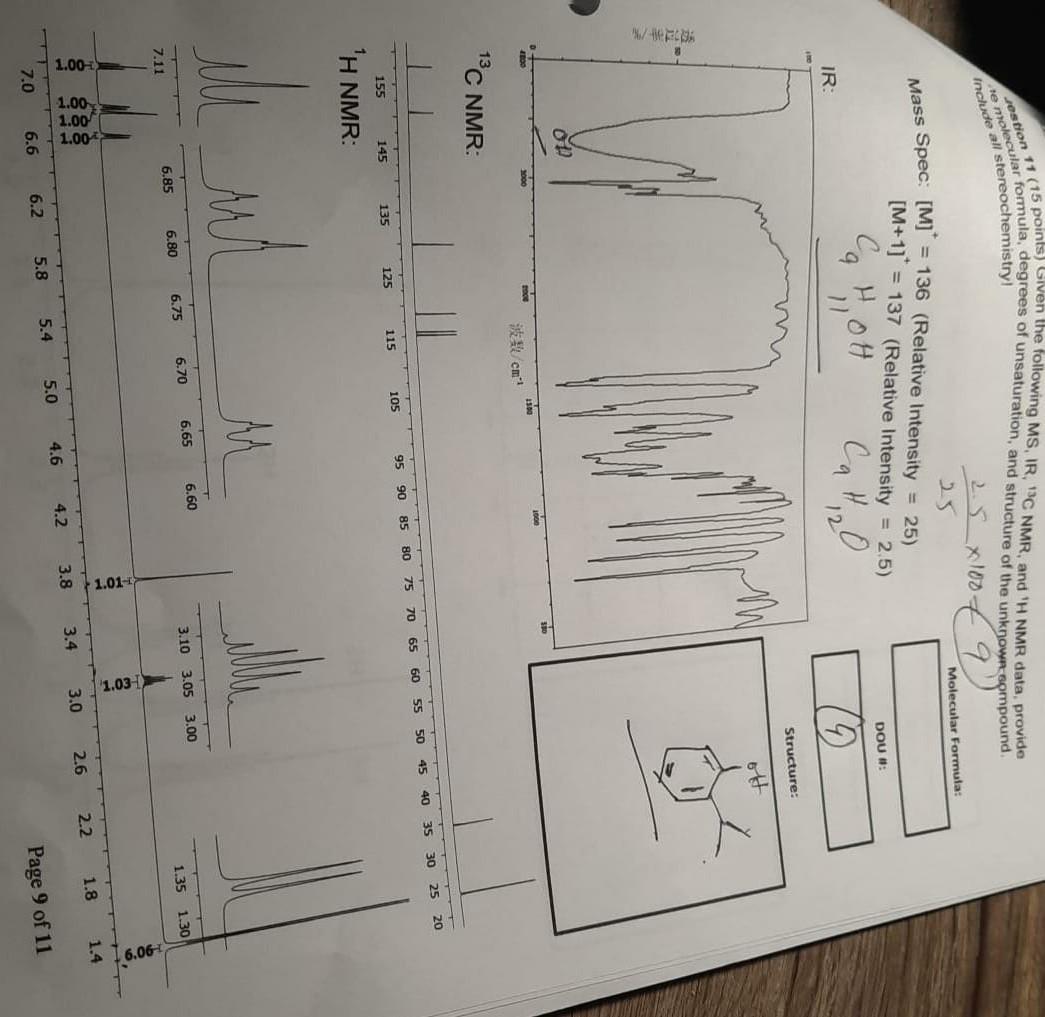 estion 11 (15 points) Given the following MS, IR, ¹³C NMR, and ¹H NMR data, provide
e molecular formula, degrees of unsaturation, and structure of the unknown compound.
Include all stereochemistry!
2.5
25
x100
9
Molecular Formula:
Mass Spec: [M]⁺ = 136 (Relative Intensity = 25)
[M+1]⁺ = 137 (Relative Intensity = 2.5)
C9 H11 OH
C9 H12 O
DOU #:
(4)
IR:
Structure:
OH
100
50
0
OH
4000
3000
2000
1500
1000
500
波数/cm⁻¹
¹³C NMR:
155 145 135 125 115 105 95 90 85 80 75 70 65 60 55 50 45 40 35 30 25 20
¹H NMR:
7.11
6.85 6.80 6.75 6.70 6.65 6.60
3.10 3.05 3.00
1.35 1.30
1.00
1.00
1.00
1.00
1.01
1.03
6.06
7.0 6.6 6.2 5.8 5.4 5.0 4.6 4.2 3.8 3.4 3.0 2.6 2.2 1.8 1.4
Page 9 of 11